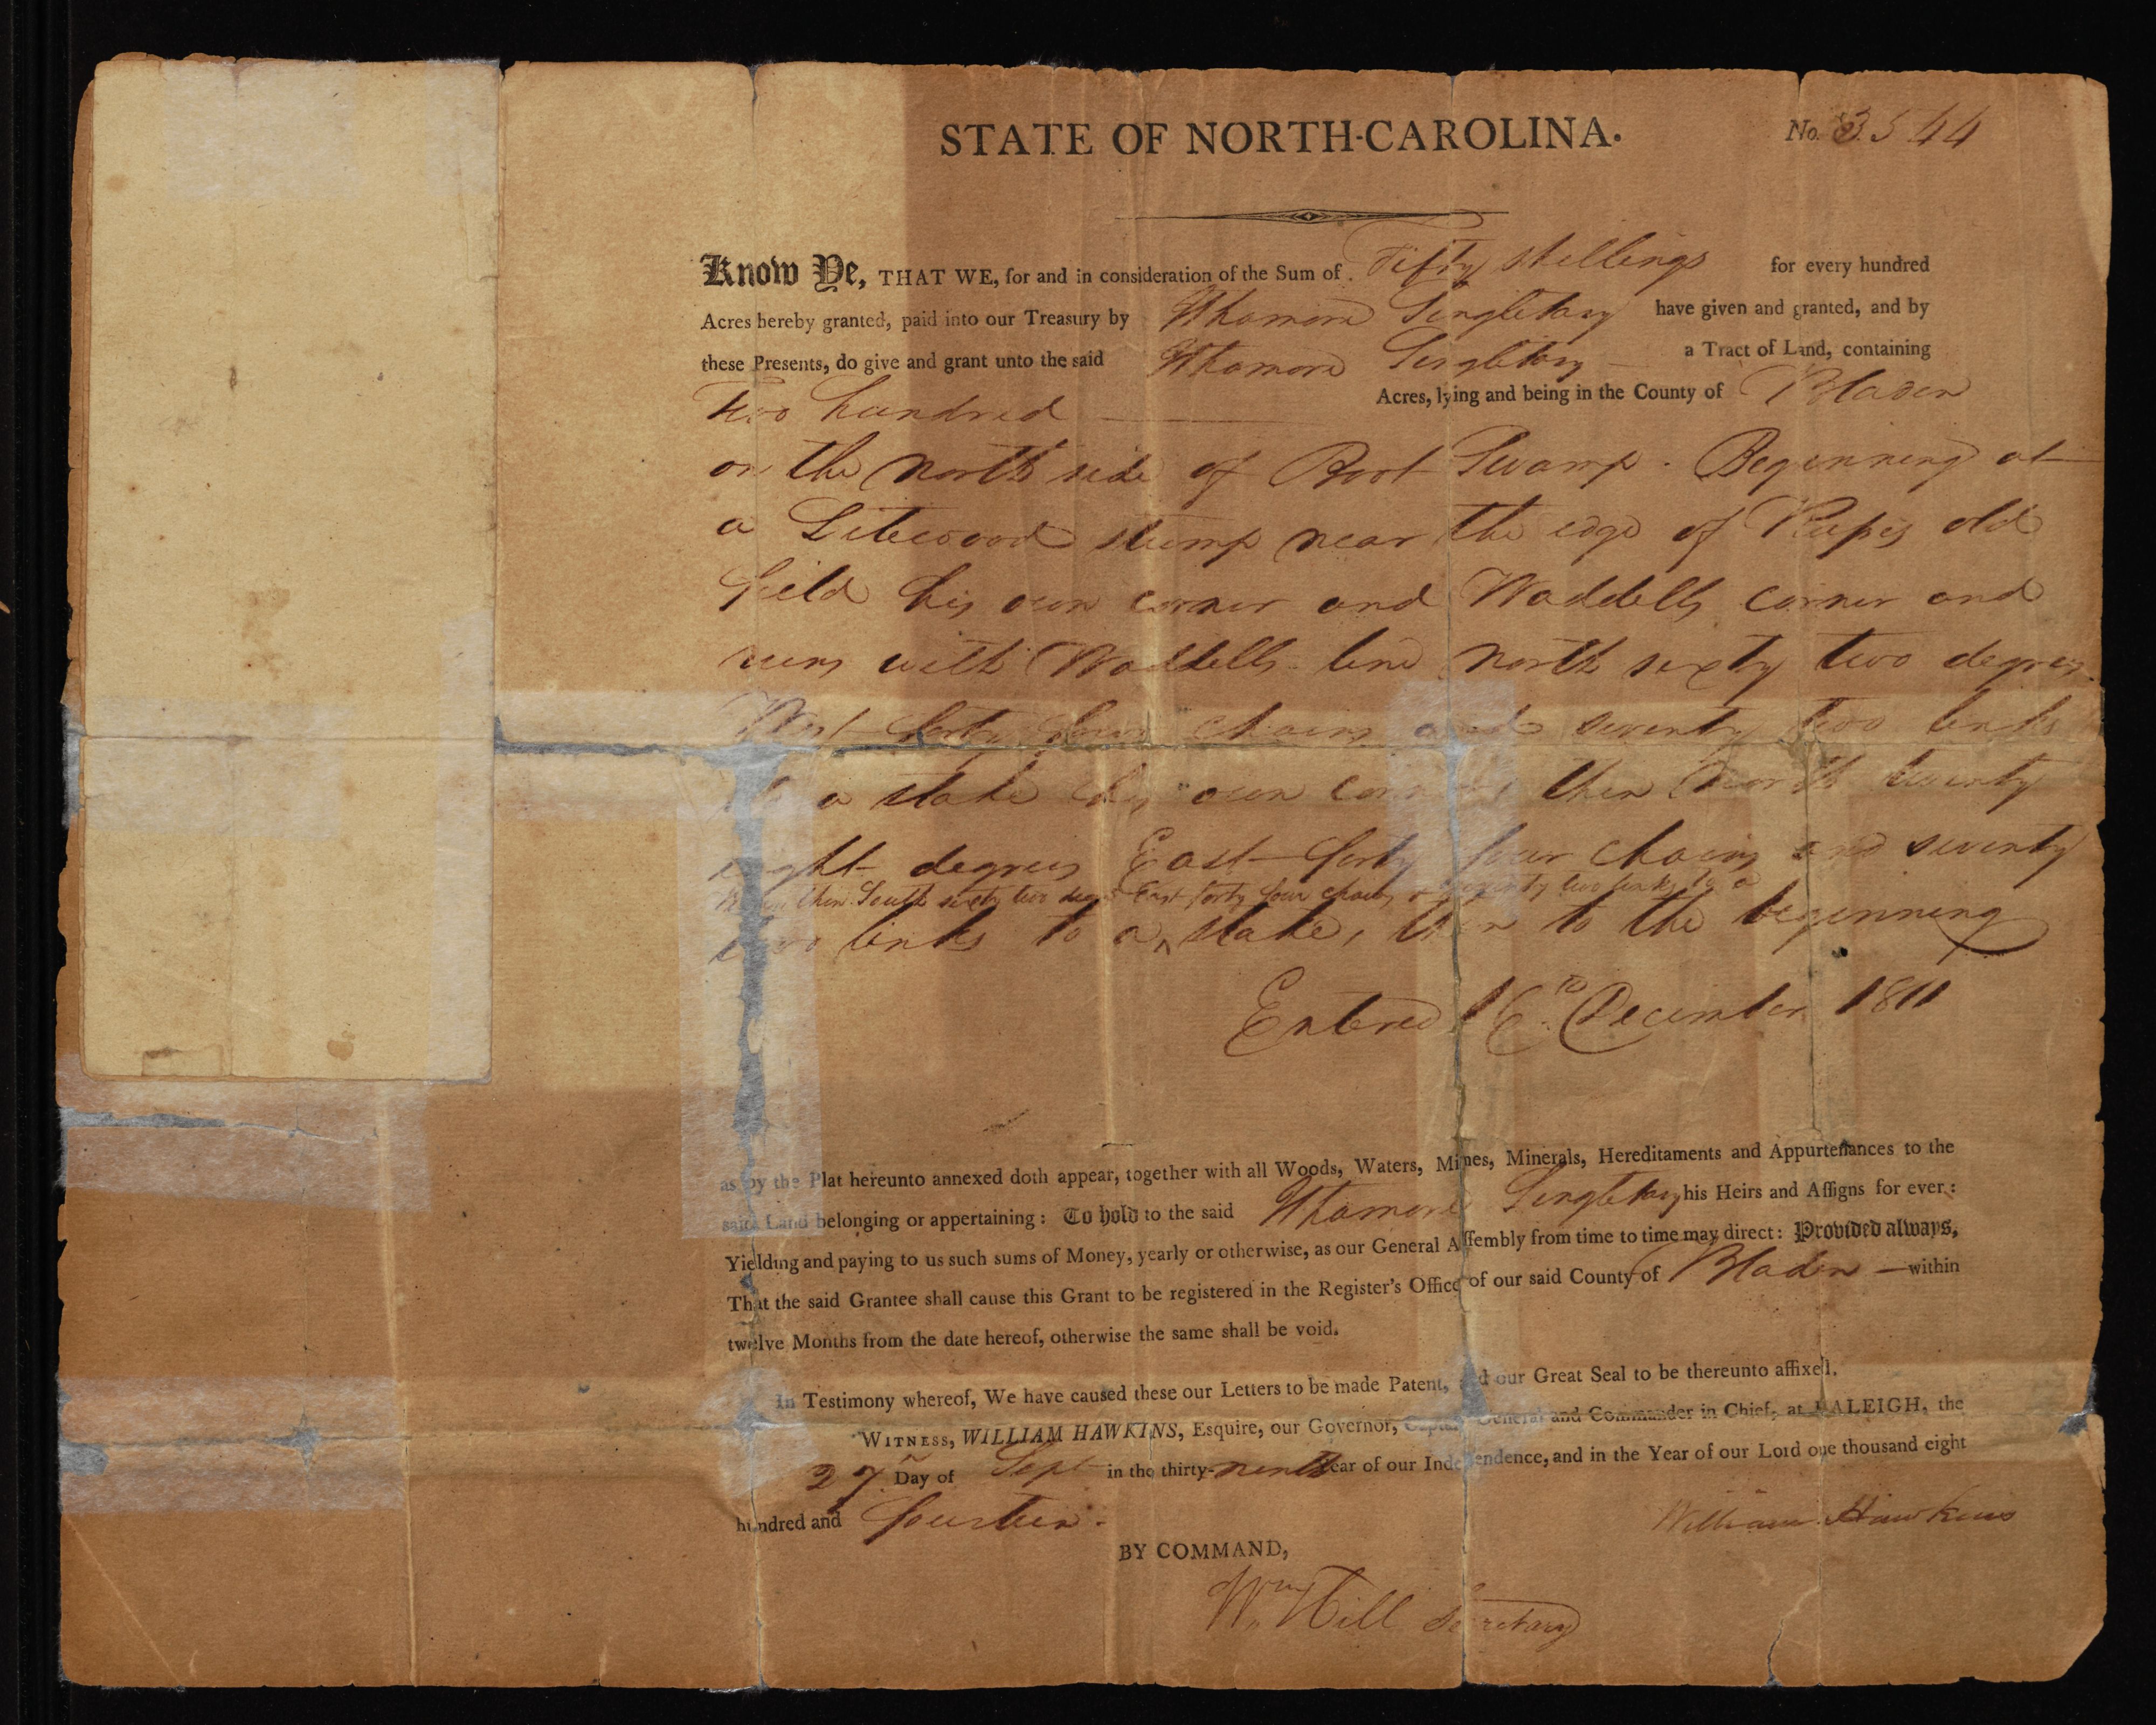 STATE OF NORTH-CAROLINA.
No. 3544
Know Ye, THAT WE, for and in consideration of the Sum of Fifty shillings for every hundred
Acres hereby granted, paid into our Treasury by Whamore Singletary have given and granted, and by
these Presents, do give and grant unto the said Whamore Singletary a Tract of Land, containing
Two hundred Acres, lying and being in the County of Bladen
on the north side of Swamp. Beginning at
a Litewood stump near the edge of old
field his own corner and Waddells corner and
runs with Waddells line north sixty two degrees
West forty four chains and seventy two links
to a stake his own corner then North twenty
eight degrees East forty four chains and seventy
then South sixty two degs East forty four chains & seventy two links to a
two links to a ^ stake, then to the beginning
Entered 16th December 1811
as by the Plat hereunto annexed doth appear, together with all Woods, Waters, Mines, Minerals, Hereditaments and Appurtenances to the
said Land belonging or appertaining: To hold to the said Whamore Singletary his Heirs and Assigns for ever:
Yielding and paying to us such sums of Money, yearly or otherwise, as our General Assembly from time to time may direct: Provided always,
That the said Grantee shall cause this Grant to be registered in the Register's Office of our said County of Bladen within
twelve Months from the date hereof, otherwise the same shall be void.
In Testimony whereof, We have caused these our Letters to be made Patent, and our Great Seal to be thereunto affixed.
WITNESS, WILLIAM HAWKINS, Esquire, our Governor, Captain General and Commander in Chief, at RALEIGH, the
27 Day of Sept in the thirty-ninth Year of our Independence, and in the Year of our Lord one thousand eight
hundred and fourteen.
William Hawkins
BY COMMAND,
Wm Hill Secretary